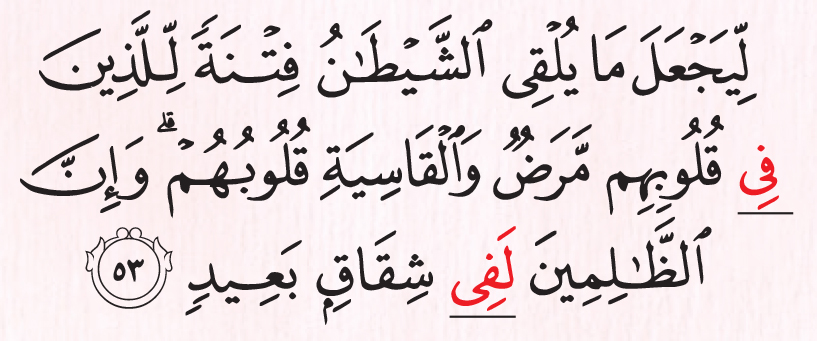 لِّيَجْعَلَ مَا يُلْقِى ٱلشَّيْطَـٰنُ فِتْنَةً لِّلَّذِينَ
فِى قُلُوبِهِم مَّرَضٌ وَٱلْقَاسِيَةِ قُلُوبُهُمْ ۗ وَإِنَّ
ٱلظَّـٰلِمِينَ لَفِى شِقَاقٍۭ بَعِيدٍ ٥٣